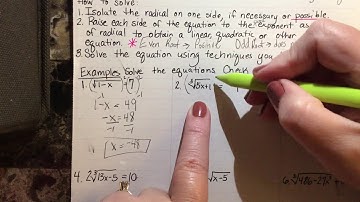 How to solve:
1. Isolate the radical on one side, if necessary or possible.
2. Raise each side of the equation to the exponent as
of radical to obtain a linear, quadratic or other
equation. * Even Root → Possible Odd Root → does
3. Solve the equation using techniques you
Examples: Solve the equations. Check
1. (√1-x = 7)
2. (∛5x+1 =
1-x = 49
-1 -1
-x = 48
-1 -1
x = -48
4. 2∛13x-5 = 10
√x-5